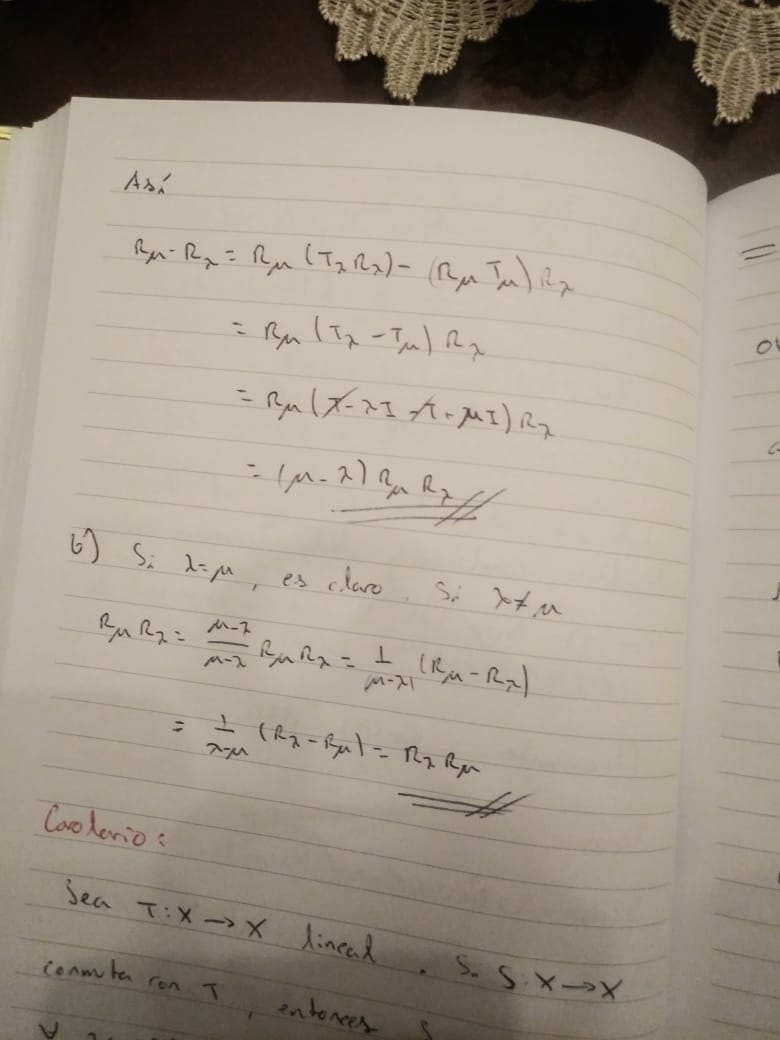 Así
Rμ - Rλ = Rμ (Tλ Rλ) - (Rμ Tμ) Rλ
= Rμ (Tλ - Tμ) Rλ
= Rμ (T - λI - T + μI) Rλ
= (μ - λ) Rμ Rλ
b) Si λ = μ, es claro. Si λ ≠ μ
Rμ Rλ = \frac{μ-λ}{μ-λ} Rμ Rλ = \frac{1}{μ-λ} (Rμ - Rλ)
= \frac{1}{λ-μ} (Rλ - Rμ) = Rλ Rμ
Corolario:
Sea T: X → X lineal. Si S: X → X
conmuta con T, entonces S
∀